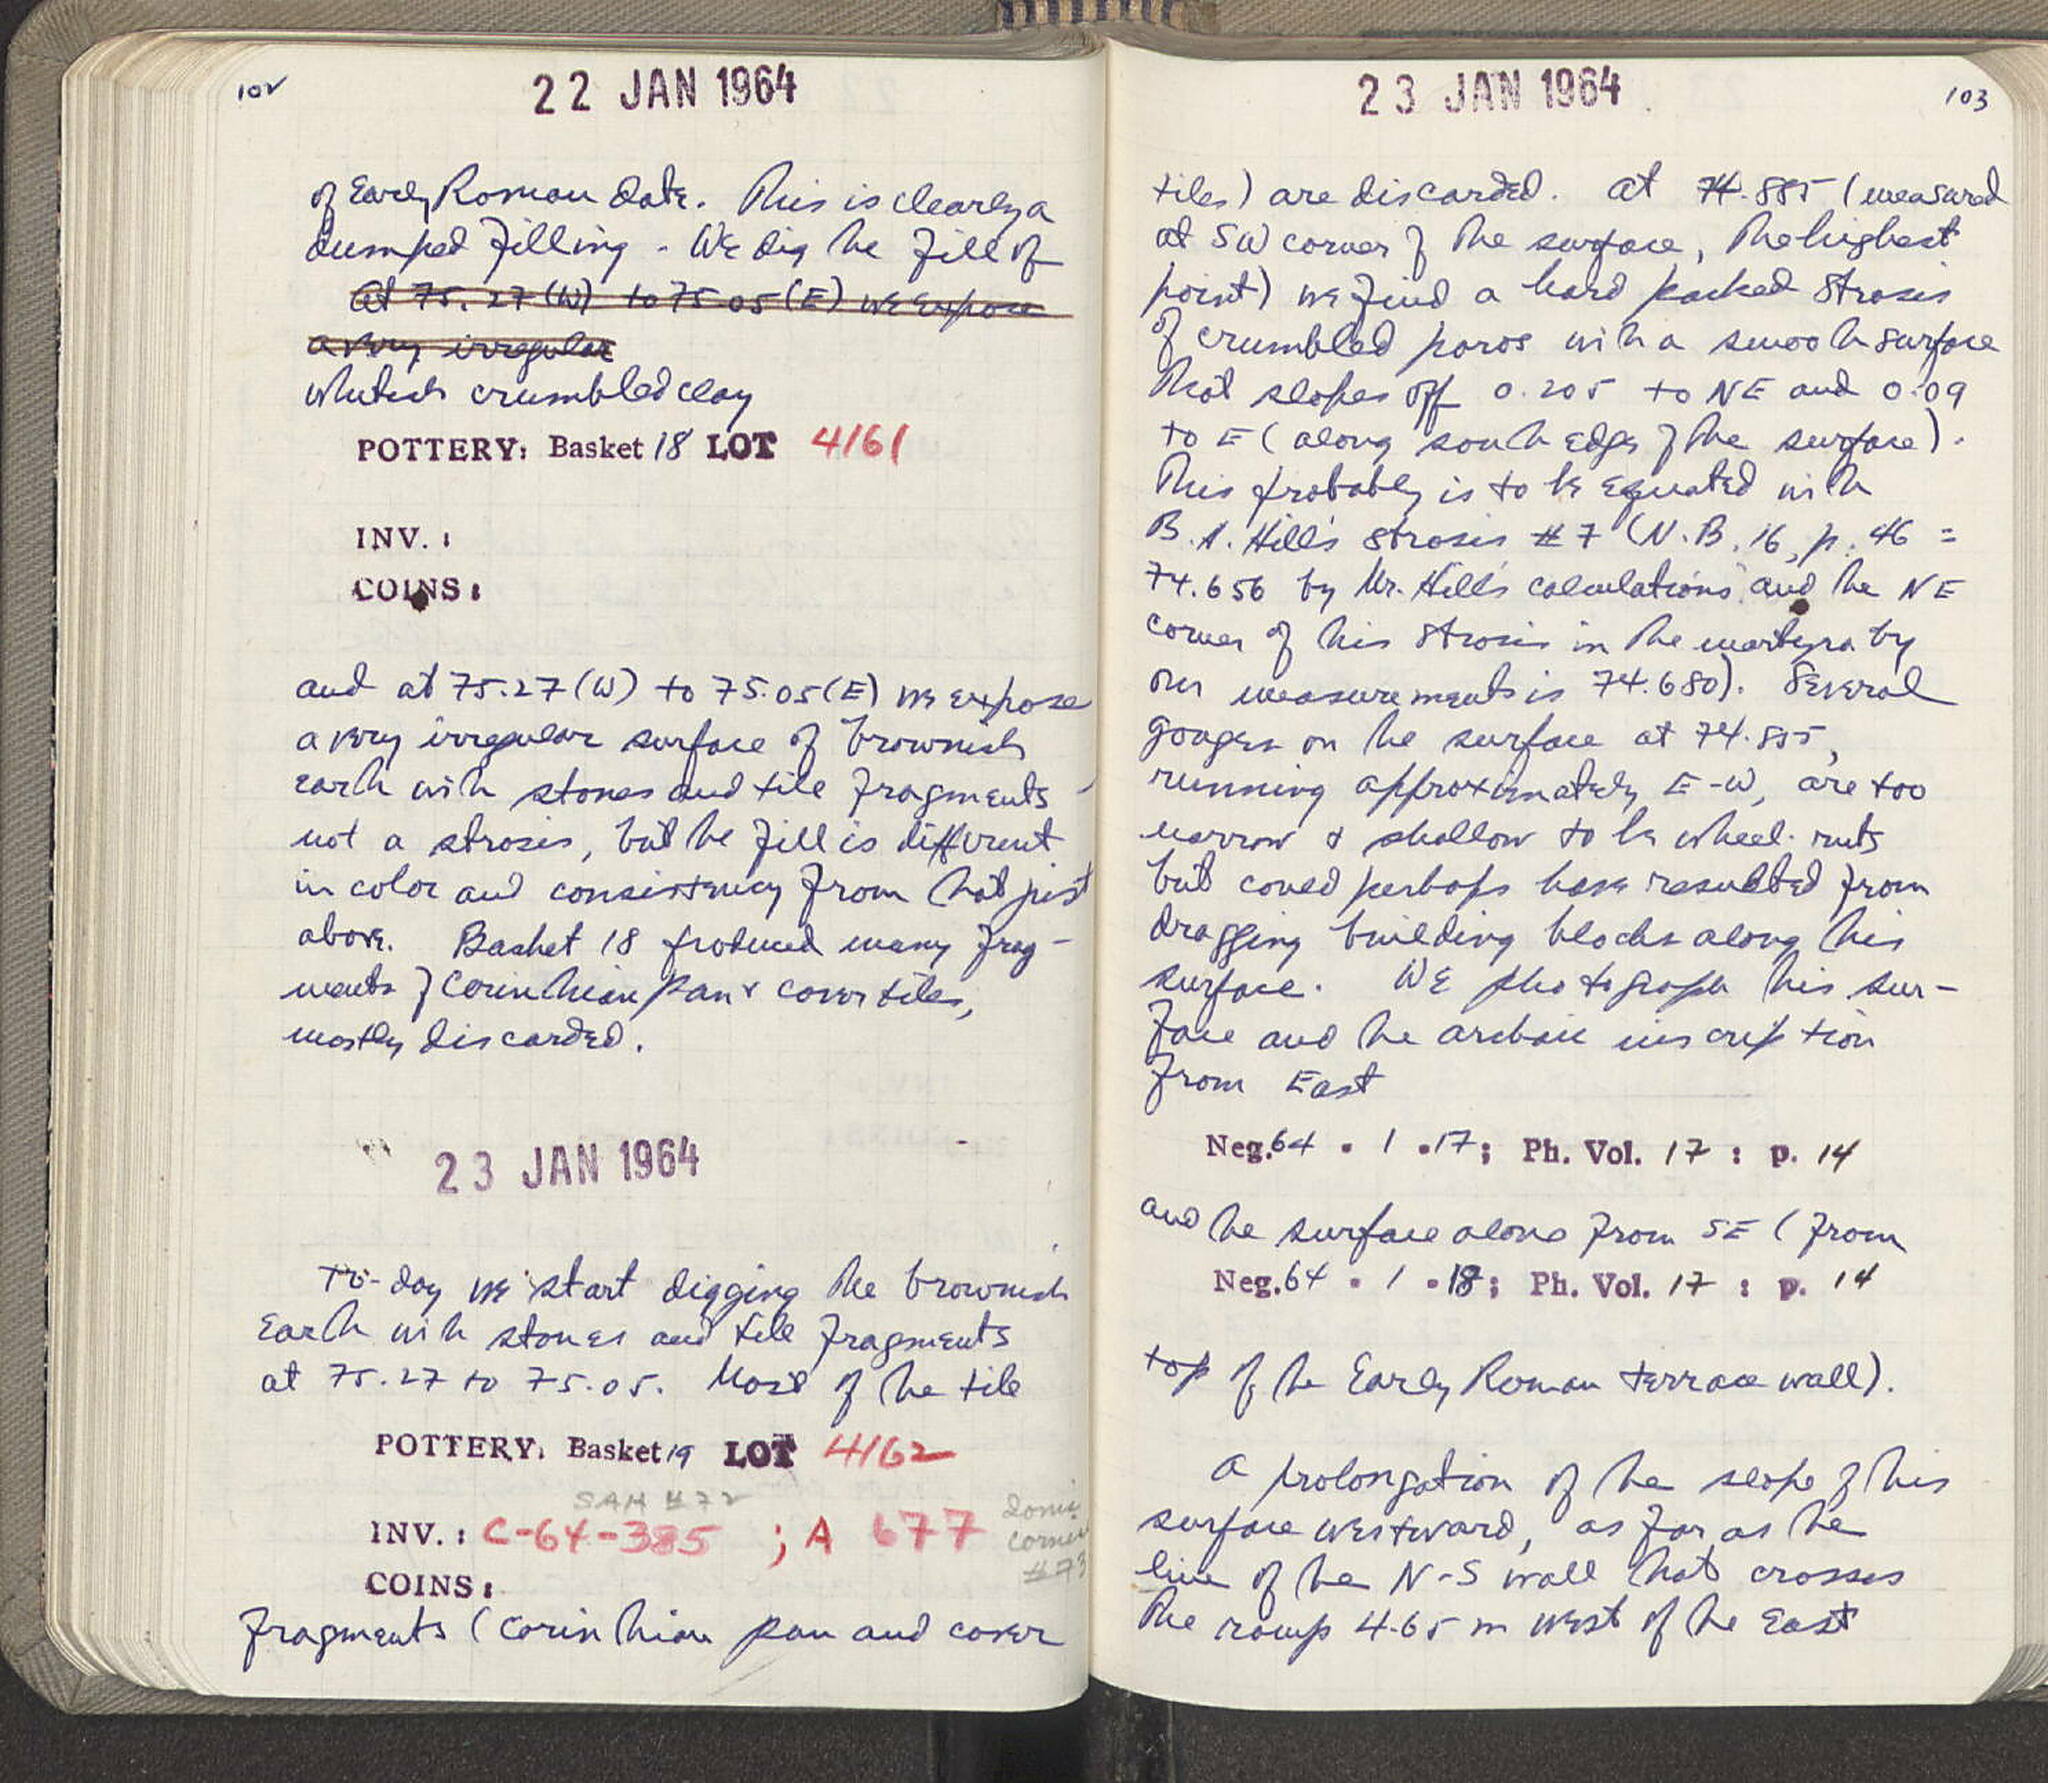 102
22 JAN 1964
of Early Roman date. This is clearly a
dumped filling - We dig the fill of
at 75.27 (W) to 75.05 (E) we expose
a very irregular
whitish crumbled clay
POTTERY: Basket 18 LOT 4161
INV. :
COINS :
and at 75.27 (W) to 75.05 (E) we expose
a very irregular surface of brownish
earth with stones and tile fragments -
not a strosis, but the fill is different
in color and consistency from that just
above. Basket 18 produced many frag-
ments of Corinthian pan & cover tiles,
mostly discarded.
23 JAN 1964
To-day we start digging the brownish
Earth with stones and tile fragments
at 75.27 to 75.05. Most of the tile
POTTERY: Basket 19 LOT 4162
SAH #72
INV. : C-64-385 ; A 677
Ionic
Corner
#73
COINS :
fragments (Corinthian pan and cover
23 JAN 1964
103
tiles) are discarded. At 74.885 (measured
at SW corner of the surface, the highest
point) we find a hard packed strosis
of crumbled poros with a smooth surface
that slopes off 0.205 to NE and 0.09
to E (along south edge of the surface).
This probably is to be equated with
B. H. Hill's strosis #7 (N.B. 16, p. 46 =
74.656 by Mr. Hill's calculations and the NE
corner of his strosis in the martyra by
our measurements is 74.680). Several
gouges on the surface at 74.855,
running approximately E-W, are too
narrow & shallow to be wheel-ruts
but could perhaps have resulted from
dragging building blocks along this
surface. We photograph this sur-
face and the archaic inscription
from East
Neg. 64 . 1 . 17; Ph. Vol. 17 : p. 14
and the surface alone from SE (from
Neg. 64 . 1 . 18; Ph. Vol. 17 : p. 14
top of the Early Roman terrace wall).
A prolongation of the slope of this
surface westward, as far as the
line of the N-S wall that crosses
the ramp 4.65 m west of the East